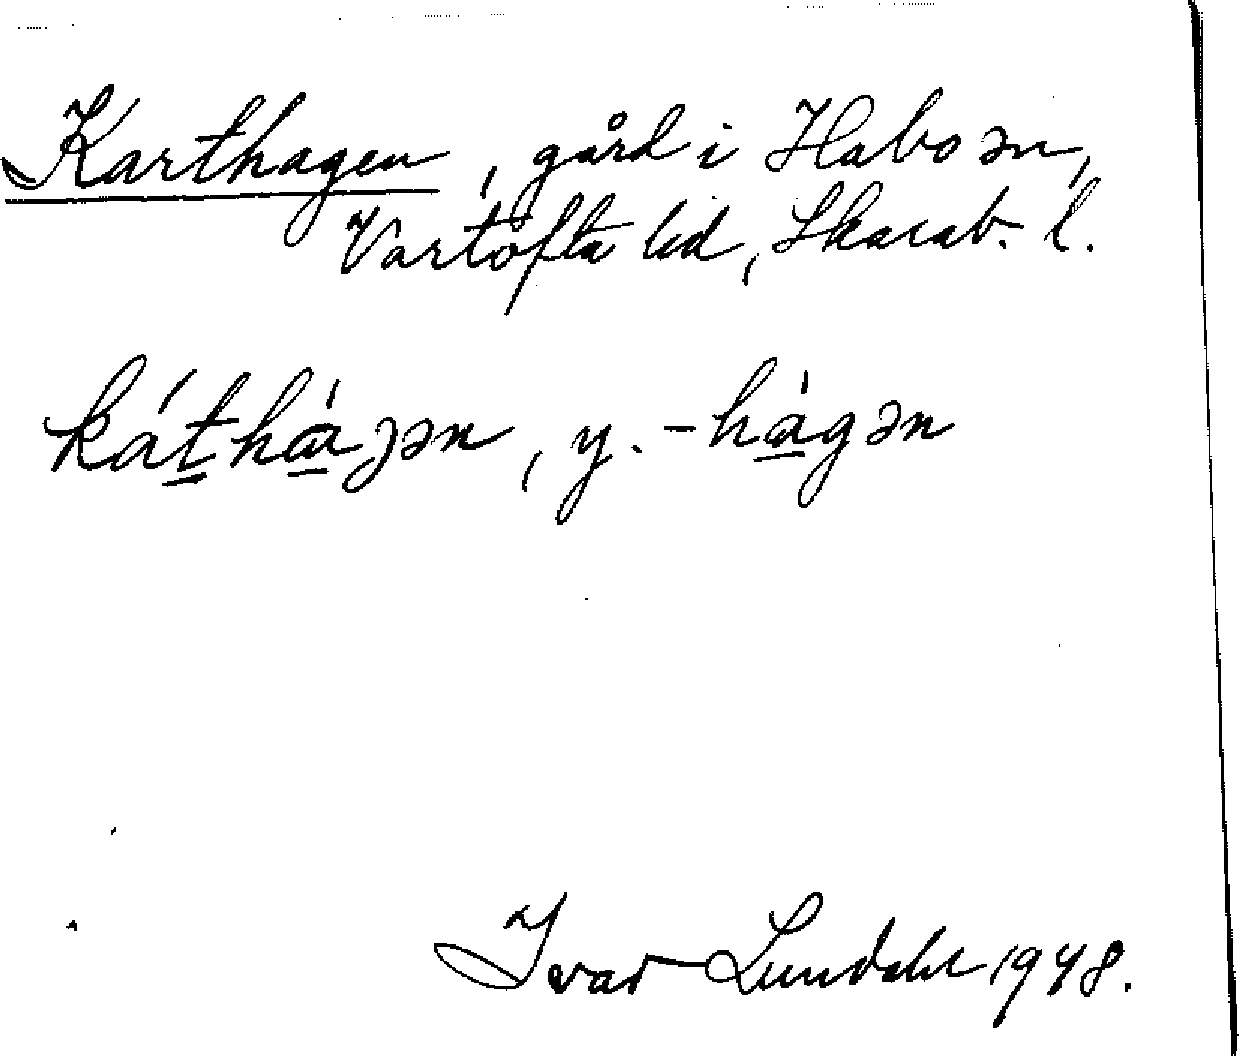 Karthagen, gård i Habo sn,
Vartofta hd, Skarab. l.
káthàgən, y. -hàgən
Ivar Lundahl 1948.